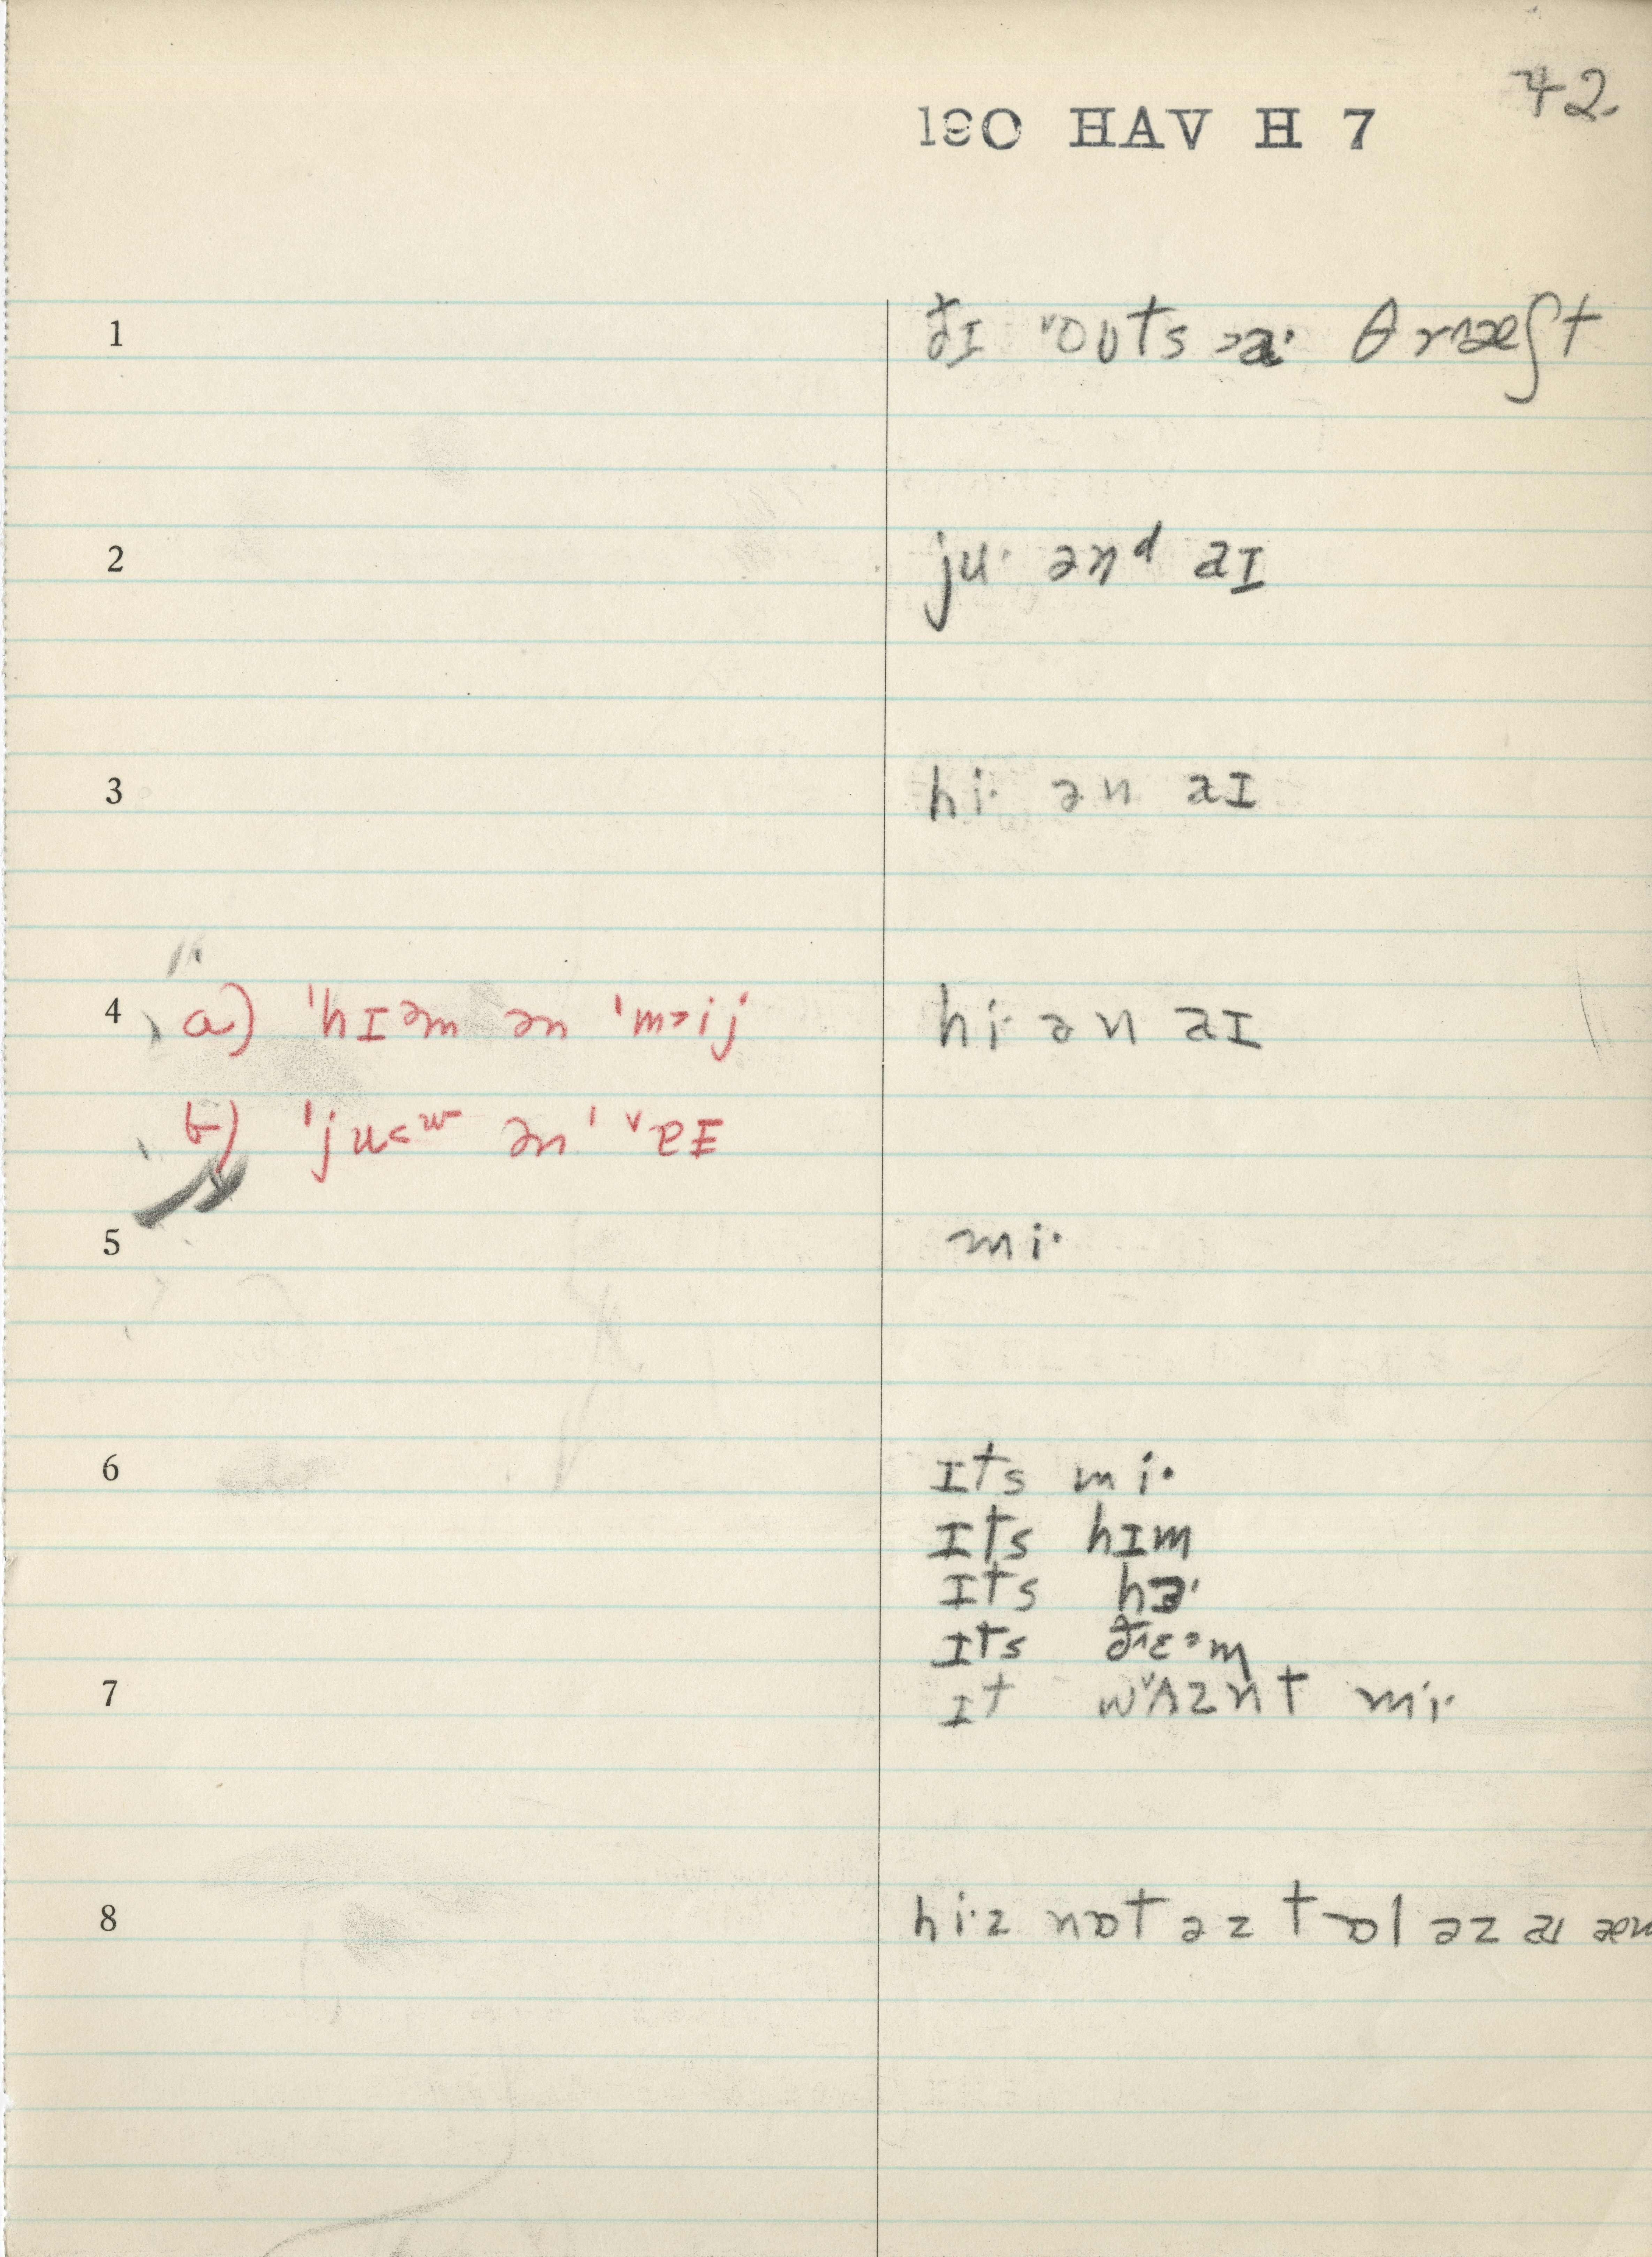 42
190 HAV H 7
1 ðɪ ˅oʊts ˃aˑ θræʃt
2 juˑ ənᵈ aɪ
3 hiˑ ən aɪ
4 a) ˈhɪəm ən ˈm˃ij hiˑ ən aɪ
b) ˈju˂ʷ ənˈ ˅ɐɪ
5 miˑ
6 ɪts miˑ
ɪts hɪm
ɪts hɜˑ
ɪts ðɛəm
7 ɪt w˅ʌznt miˑ
8 hiˑz nɒt əz tɔl əz aɪ æm